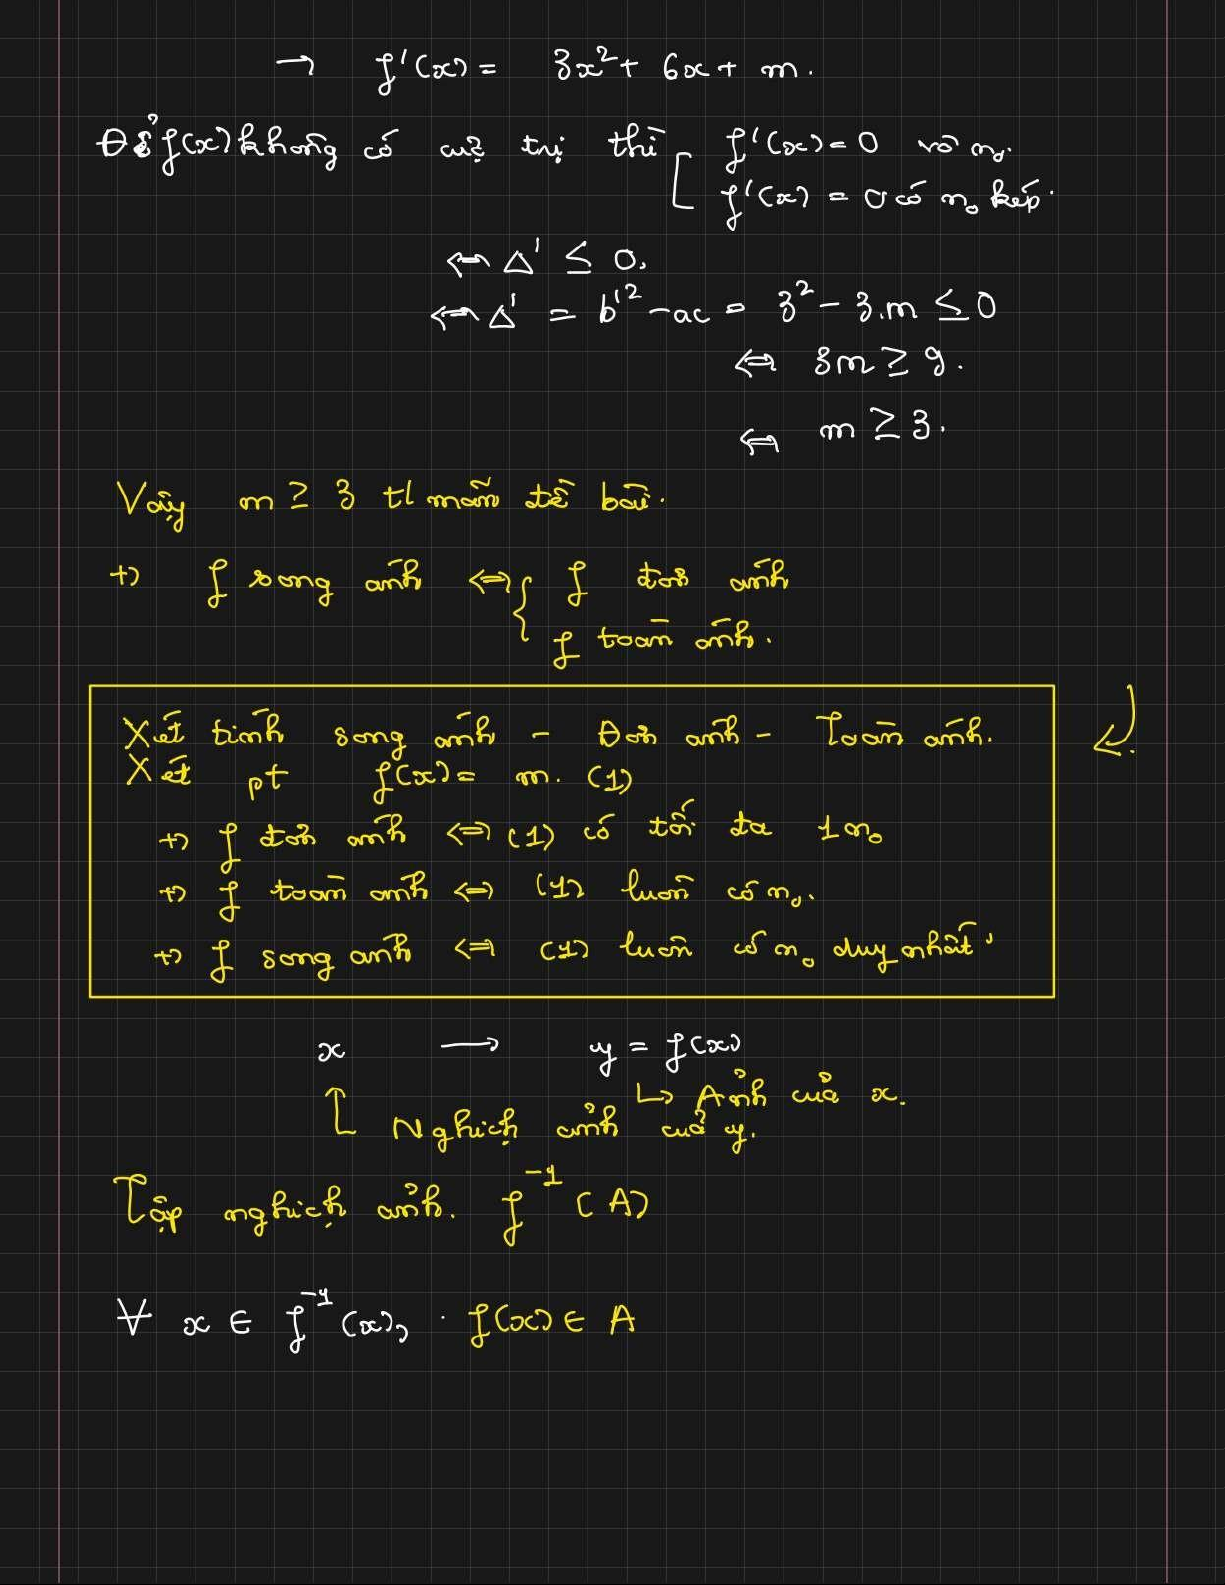 → f'(x) = 3x² + 6x + m.
Để f(x) không có cực trị thì [ f'(x) = 0 vô n₀.
f'(x) = 0 có n₀ kép.
⇔ Δ' ≤ 0.
⇔ Δ' = b'² - ac = 3² - 3.m ≤ 0
⇔ 3m ≥ 9.
⇔ m ≥ 3.
Vậy m ≥ 3 t/mãn đề bài.
+) f song ánh ⇔ { f đơn ánh
f toàn ánh.
Xét tính song ánh - Đơn ánh - Toàn ánh.
Xét pt f(x) = m. (1)
+) f đơn ánh ⇔ (1) có tối đa 1 n₀
+) f toàn ánh ⇔ (1) luôn có n₀.
+) f song ánh ⇔ (1) luôn có n₀ duy nhất.
x → y = f(x)
↳ Ảnh của x.
Nghịch ảnh của y.
Tập nghịch ảnh. f⁻¹(A)
∀ x ∈ f⁻¹(x), f(x) ∈ A